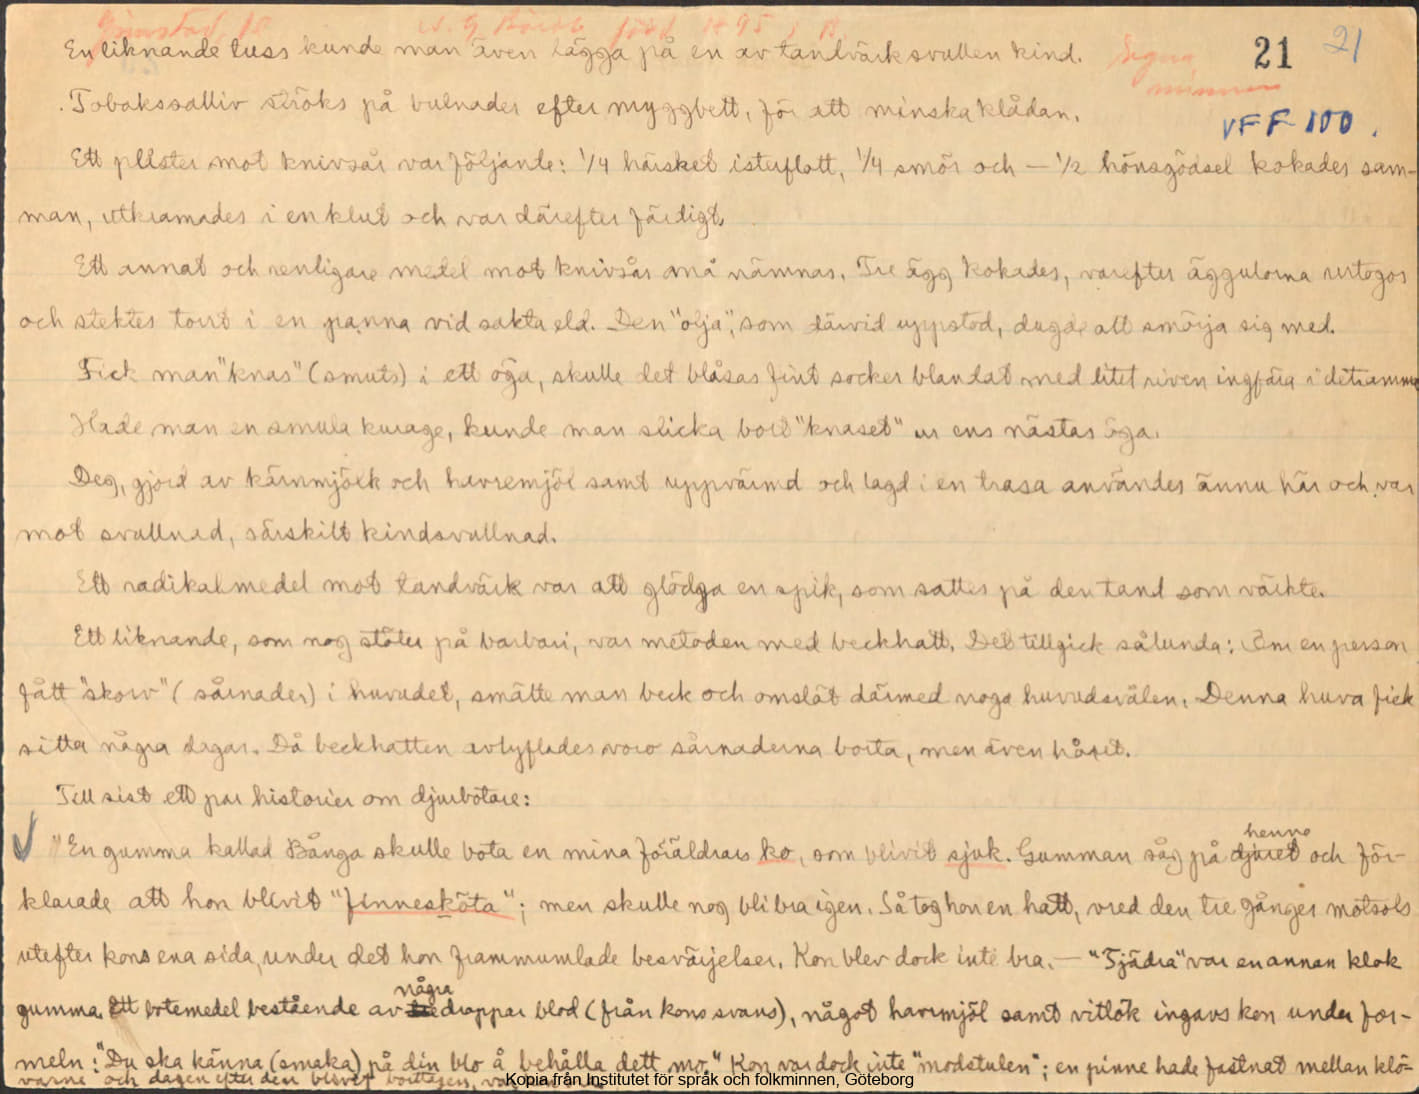 Grimstad, P.
född 1895, A
En liknande tuss kunde man även lägga på en av tandvärk svullen kind.
Egna minnen
21
21
.Tobakssalliv ströks på bulnader efter myggbett, för att minska klådan.
VFF 100.
Ett plåster mot knivsår var följande: 1/4 härsket isterflott, 1/4 smör och — 1/2 hönsgödsel kokades sam-
man, utkramades i en klut och var därefter färdigt.
Ett annat och renligare medel mot knivsår må nämnas. Tre ägg kokades, varefter äggulorna urtogos
och stektes torrt i en panna vid sakta eld. Den "olja", som därvid uppstod, dugde att smörja sig med.
Fick man "knas" (smuts) i ett öga, skulle det blåsas fint socker blandat med litet riven ingfära i detsamma
Hade man en smula kurage, kunde man slicka bort "knaset" ur ens nästas öga.
Deg, gjord av kärnmjölk och havremjöl samt uppvärmd och lagd i en trasa användes ännu här och var
mot svullnad, särskilt kindsvullnad.
Ett radikalmedel mot tandvärk var att glödga en spik, som sattes på den tand som värkte.
Ett liknande, som nog stöter på barbari, var metoden med beckhatt. Det tillgick sålunda: Om en person
fått "skorv" (sårnader) i huvudet, smätte man beck och omslöt därmed noga huvudsvålen. Denna huva fick
sitta några dagar. Då beckhatten avlyftades voro sårnaderna borta, men även håret.
Till sist ett par historier om djurbotare:
"En gumma kallad Bånga skulle bota en mina föräldrars ko, som blivit sjuk. Gumman såg på djuret henne och för-
klarade att hon blivit "finnesköta"; men skulle nog bli bra igen. Så tog hon en hatt, vred den tre gånger motsols
utefter kons ena sida, under det hon frammumlade besvärjelser. Kon blev dock inte bra. — "Fjädra" var en annan klok
gumma. Ett botemedel bestående av några droppar blod (från kons svans), något havrmjöl samt vitlök ingavs kon under for-
meln: "Du ska känna (smaka) på din blo å behålla dett mo." Kon var dock inte "modstulen"; en pinne hade fastnat mellan klö-
varne och dagen efter den blivit borttagen,
Kopia från Institutet för språk och folkminnen, Göteborg